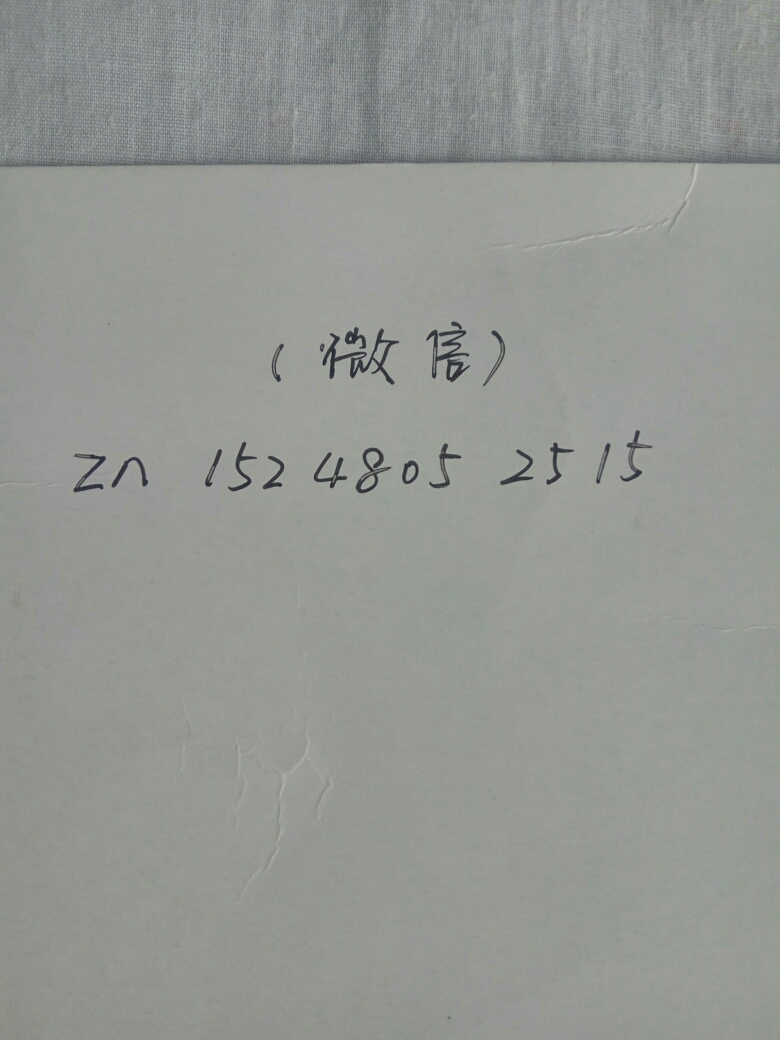 (微信)
zn 152 4805 2515